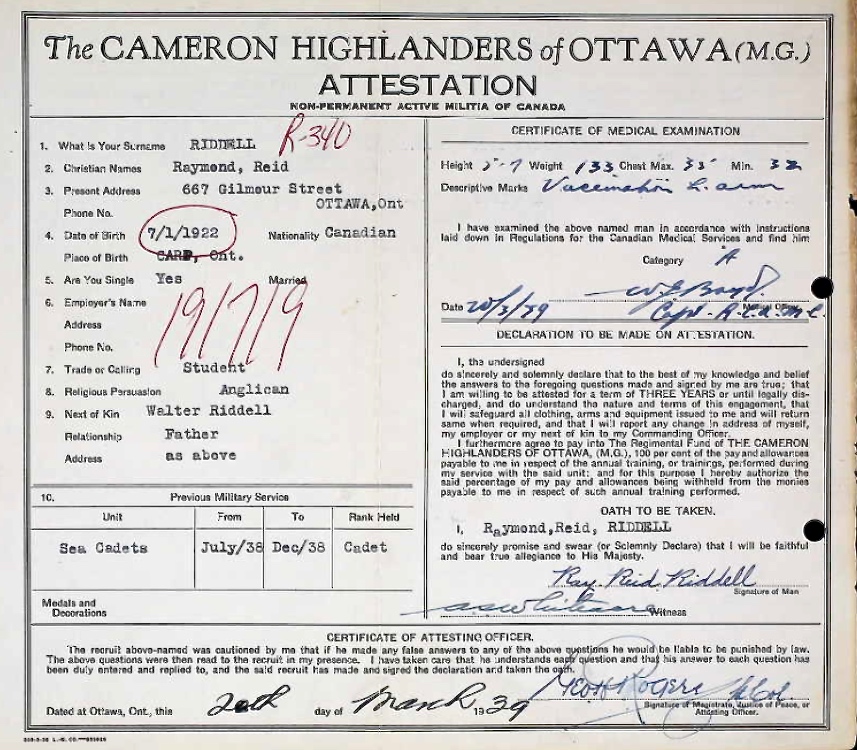 The CAMERON HIGHLANDERS of OTTAWA (M.G.)
ATTESTATION
NON-PERMANENT ACTIVE MILITIA OF CANADA
1. What Is Your Surname RIDDELL R-340
2. Christian Names Raymond, Reid
3. Present Address 667 Gilmour Street
OTTAWA,Ont
Phone No.
4. Date of Birth 7/1/1922 Nationality Canadian
Place of Birth CARP, Ont.
5. Are You Single Yes Married
6. Employer's Name
Address
19/7/9
Phone No.
7. Trade or Calling Student
8. Religious Persuasion Anglican
9. Next of Kin Walter Riddell
Relationship Father
Address as above
10. Previous Military Service
Unit From To Rank Held
Sea Cadets July/38 Dec/38 Cadet
Medals and
Decorations
CERTIFICATE OF MEDICAL EXAMINATION
Height 5-7 Weight 133 Chest Max. 35 Min. 32
Descriptive Marks Vaccination L. arm
I have examined the above named man in accordance with instructions
laid down in Regulations for the Canadian Medical Services and find him
Category A
Date 20/3/39 Medical Officer
Capt. R.C.A.M.C.
DECLARATION TO BE MADE ON ATTESTATION.
I, the undersigned
do sincerely and solemnly declare that to the best of my knowledge and belief
the answers to the foregoing questions made and signed by me are true; that
I am willing to be attested for a term of THREE YEARS or until legally dis-
charged, and do understand the nature and terms of this engagement, that
I will safeguard all clothing, arms and equipment issued to me and will return
same when required, and that I will report any change in address of myself,
my employer or my next of kin to my Commanding Officer.
I furthermore agree to pay into The Regimental Fund of THE CAMERON
HIGHLANDERS OF OTTAWA, (M.G.), 100 per cent of the pay and allowances
payable to me in respect of the annual training, or trainings, performed during
my service with the said unit; and for this purpose I hereby authorize the
said percentage of my pay and allowances being withheld from the monies
payable to me in respect of such annual training performed.
OATH TO BE TAKEN.
I, Raymond,Reid, RIDDELL
do sincerely promise and swear (or Solemnly Declare) that I will be faithful
and bear true allegiance to His Majesty.
Ray Reid Riddell
Signature of Man
Witness
CERTIFICATE OF ATTESTING OFFICER.
The recruit above-named was cautioned by me that if he made any false answers to any of the above questions he would be liable to be punished by law.
The above questions were then read to the recruit in my presence. I have taken care that he understands each question and that his answer to each question has
been duly entered and replied to, and the said recruit has made and signed the declaration and taken the oath.
Geo H Rogers
Dated at Ottawa, Ont., this 20th day of March 1939
Signature of Magistrate, Justice of Peace, or
Attesting Officer.